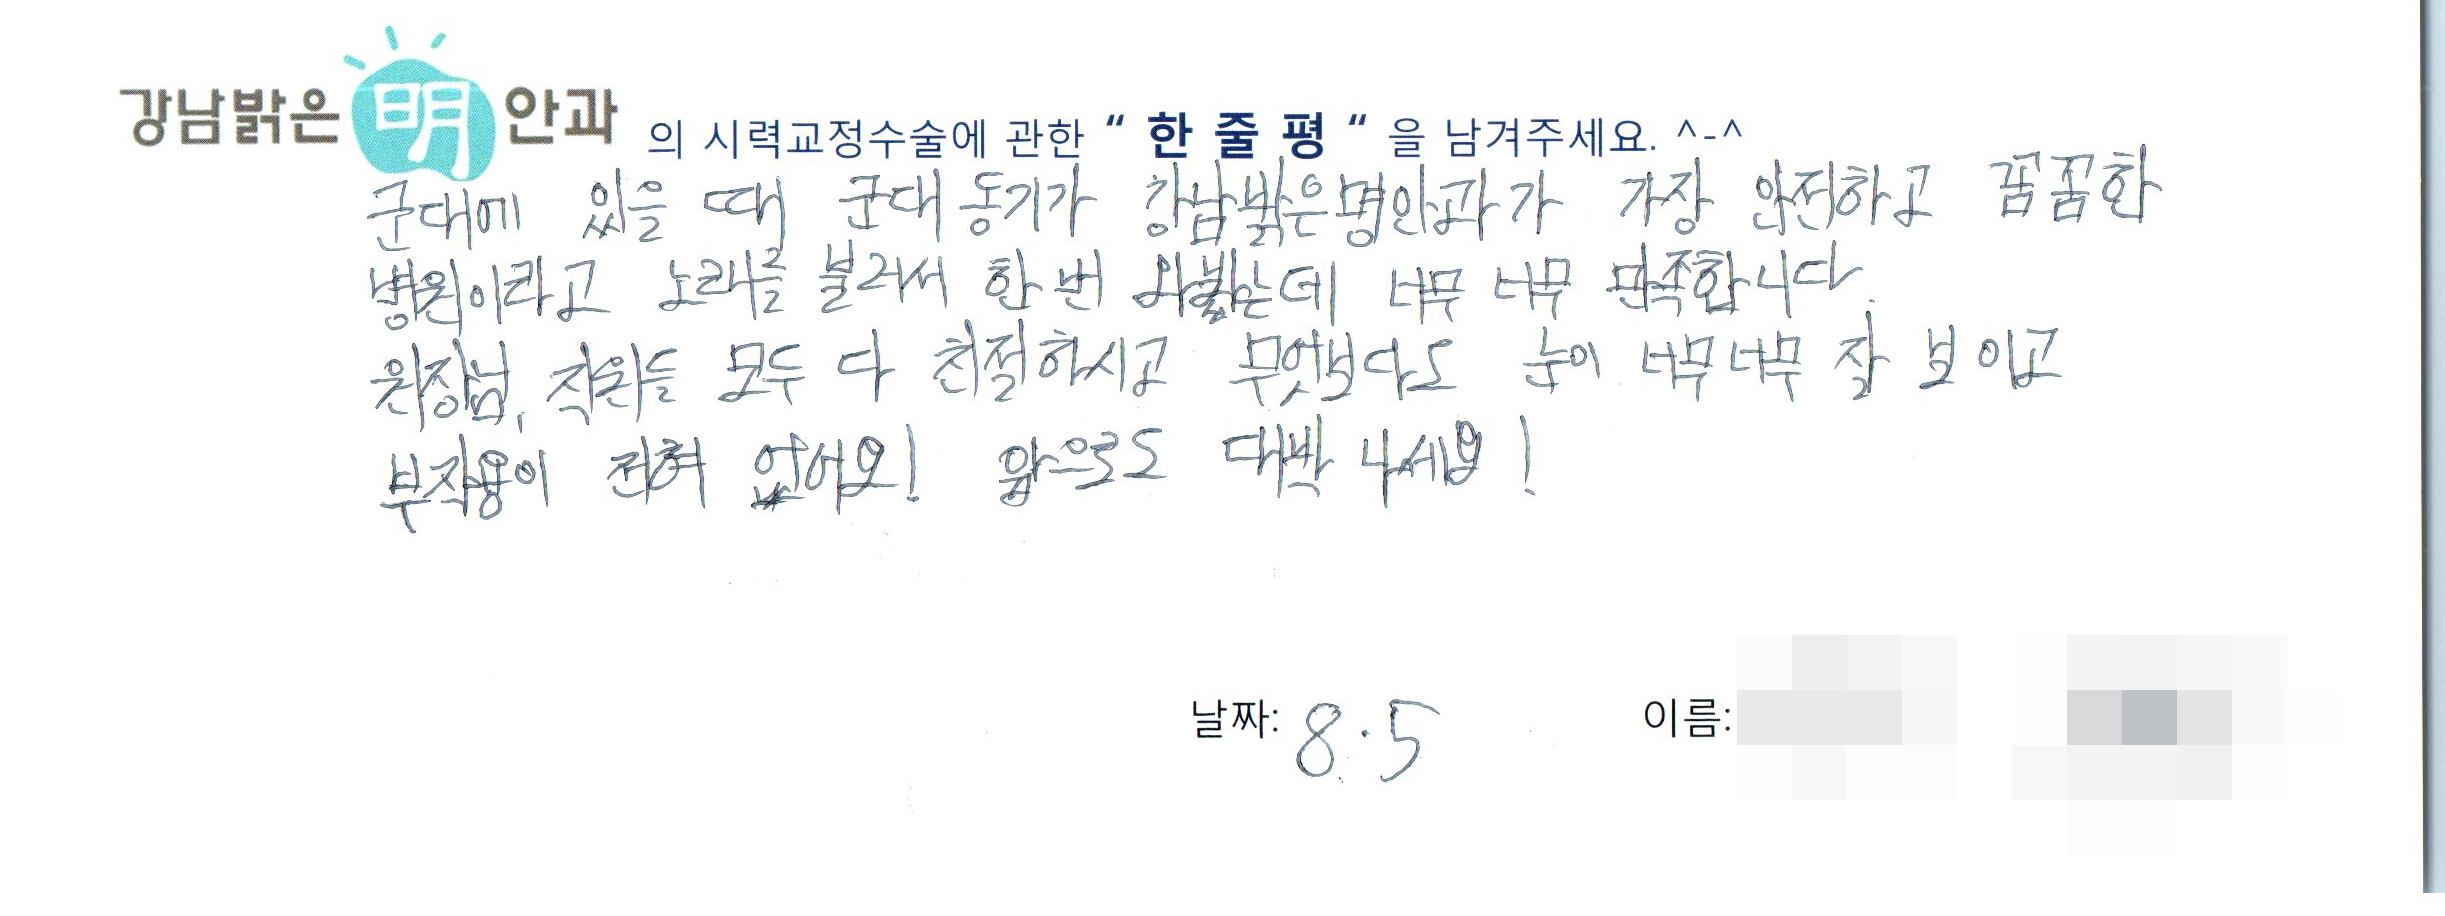 강남밝은明안과 의 시력교정수술에 관한 “ 한 줄 평 “ 을 남겨주세요. ^-^
군대에 있을 때 군대 동기가 강남밝은명안과가 가장 안전하고 꼼꼼한
병원이라고 노래를 불러서 한 번 와봤는데 너무 너무 만족합니다.
원장님, 직원들 모두 다 친절하시고 무엇보다도 눈이 너무너무 잘 보이고
부작용이 전혀 없어요! 앞으로도 대박 나세요!
날짜: 8.5 이름: